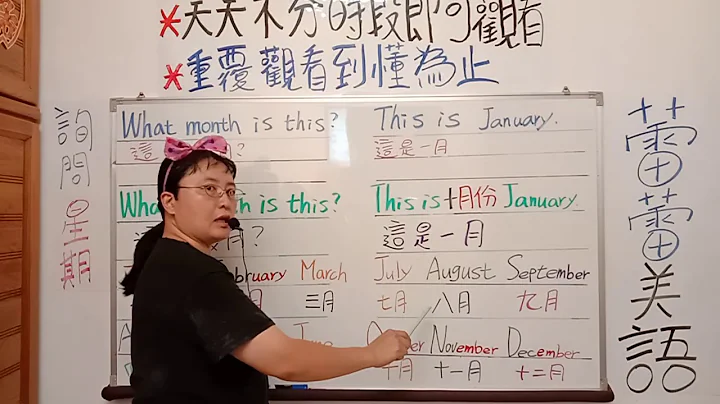 *天天不分時段即可觀看
*重覆觀看到懂為止
詢問星期
What month is this? This is January.
這 ? 這是一月
is this? This is十月份January.
月? 這是一月
February March July August September
三月 七月 八月 九月
November December
十月 十一月 十二月
蕾蕾美語